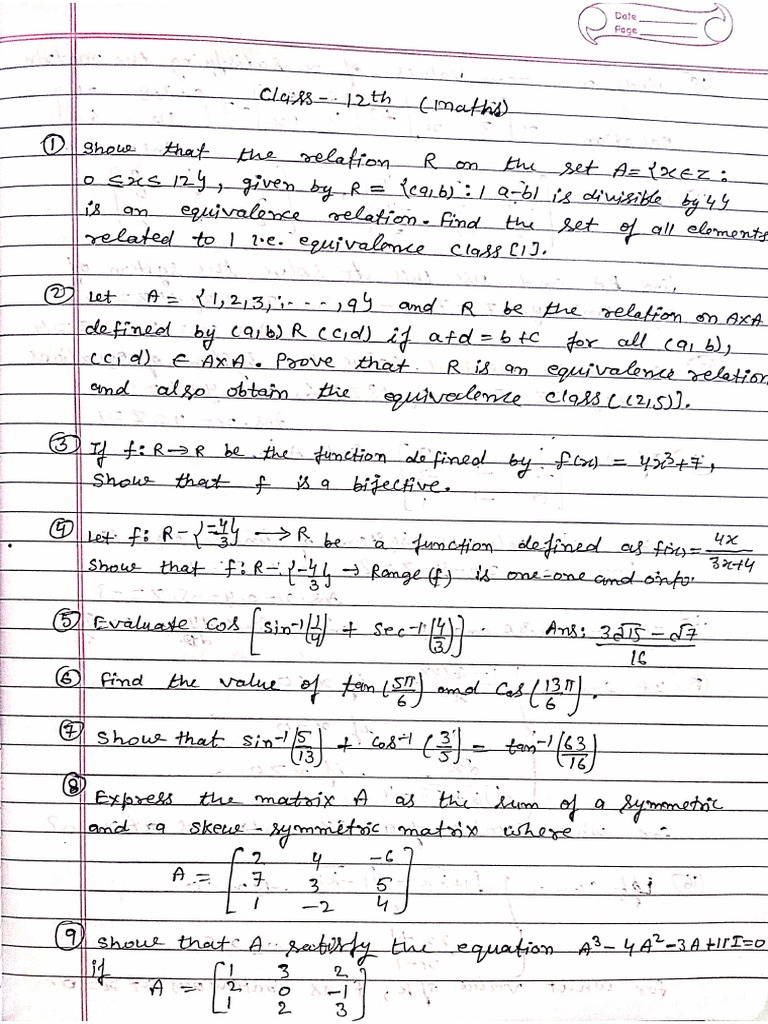 Date
Page
Class - 12th (Maths)
① Show that the relation R on the set A = {x∈z :
0 ≤ x ≤ 12}, given by R = {(a,b) : | a-b| is divisible by 4}
is an equivalence relation. Find the set of all elements
related to 1 i.e. equivalence class [1].
② Let A = {1,2,3, ; - - - , 9} and R be the relation on A×A
defined by (a,b) R (c,d) if a+d = b+c for all (a,b),
(c,d) ∈ A×A. Prove that R is an equivalence relation
and also obtain the equivalence class [(2,5)].
③ If f: R→R be the function defined by f(x) = 4x³+7,
Show that f is a bijective.
④ Let f: R - {-4/3} → R be a function defined as f(x) = 4x/(3x+4)
Show that f: R - {-4/3} → Range (f) is one-one and onto.
⑤ Evaluate cos [sin⁻¹(1/4) + sec⁻¹(4/3)]. Ans: (3√15 - √7)/16
⑥ Find the value of tan (5π/6) and cos (13π/6).
⑦ Show that sin⁻¹(5/13) + cos⁻¹(3/5) = tan⁻¹(63/16)
⑧ Express the matrix A as the sum of a symmetric
and a skew-symmetric matrix where
A = [2 4 -6
7 3 5
1 -2 4]
⑨ Show that A satisfy the equation A³-4A²-3A+11I=0
if A = [1 3 2
2 0 -1
1 2 3]